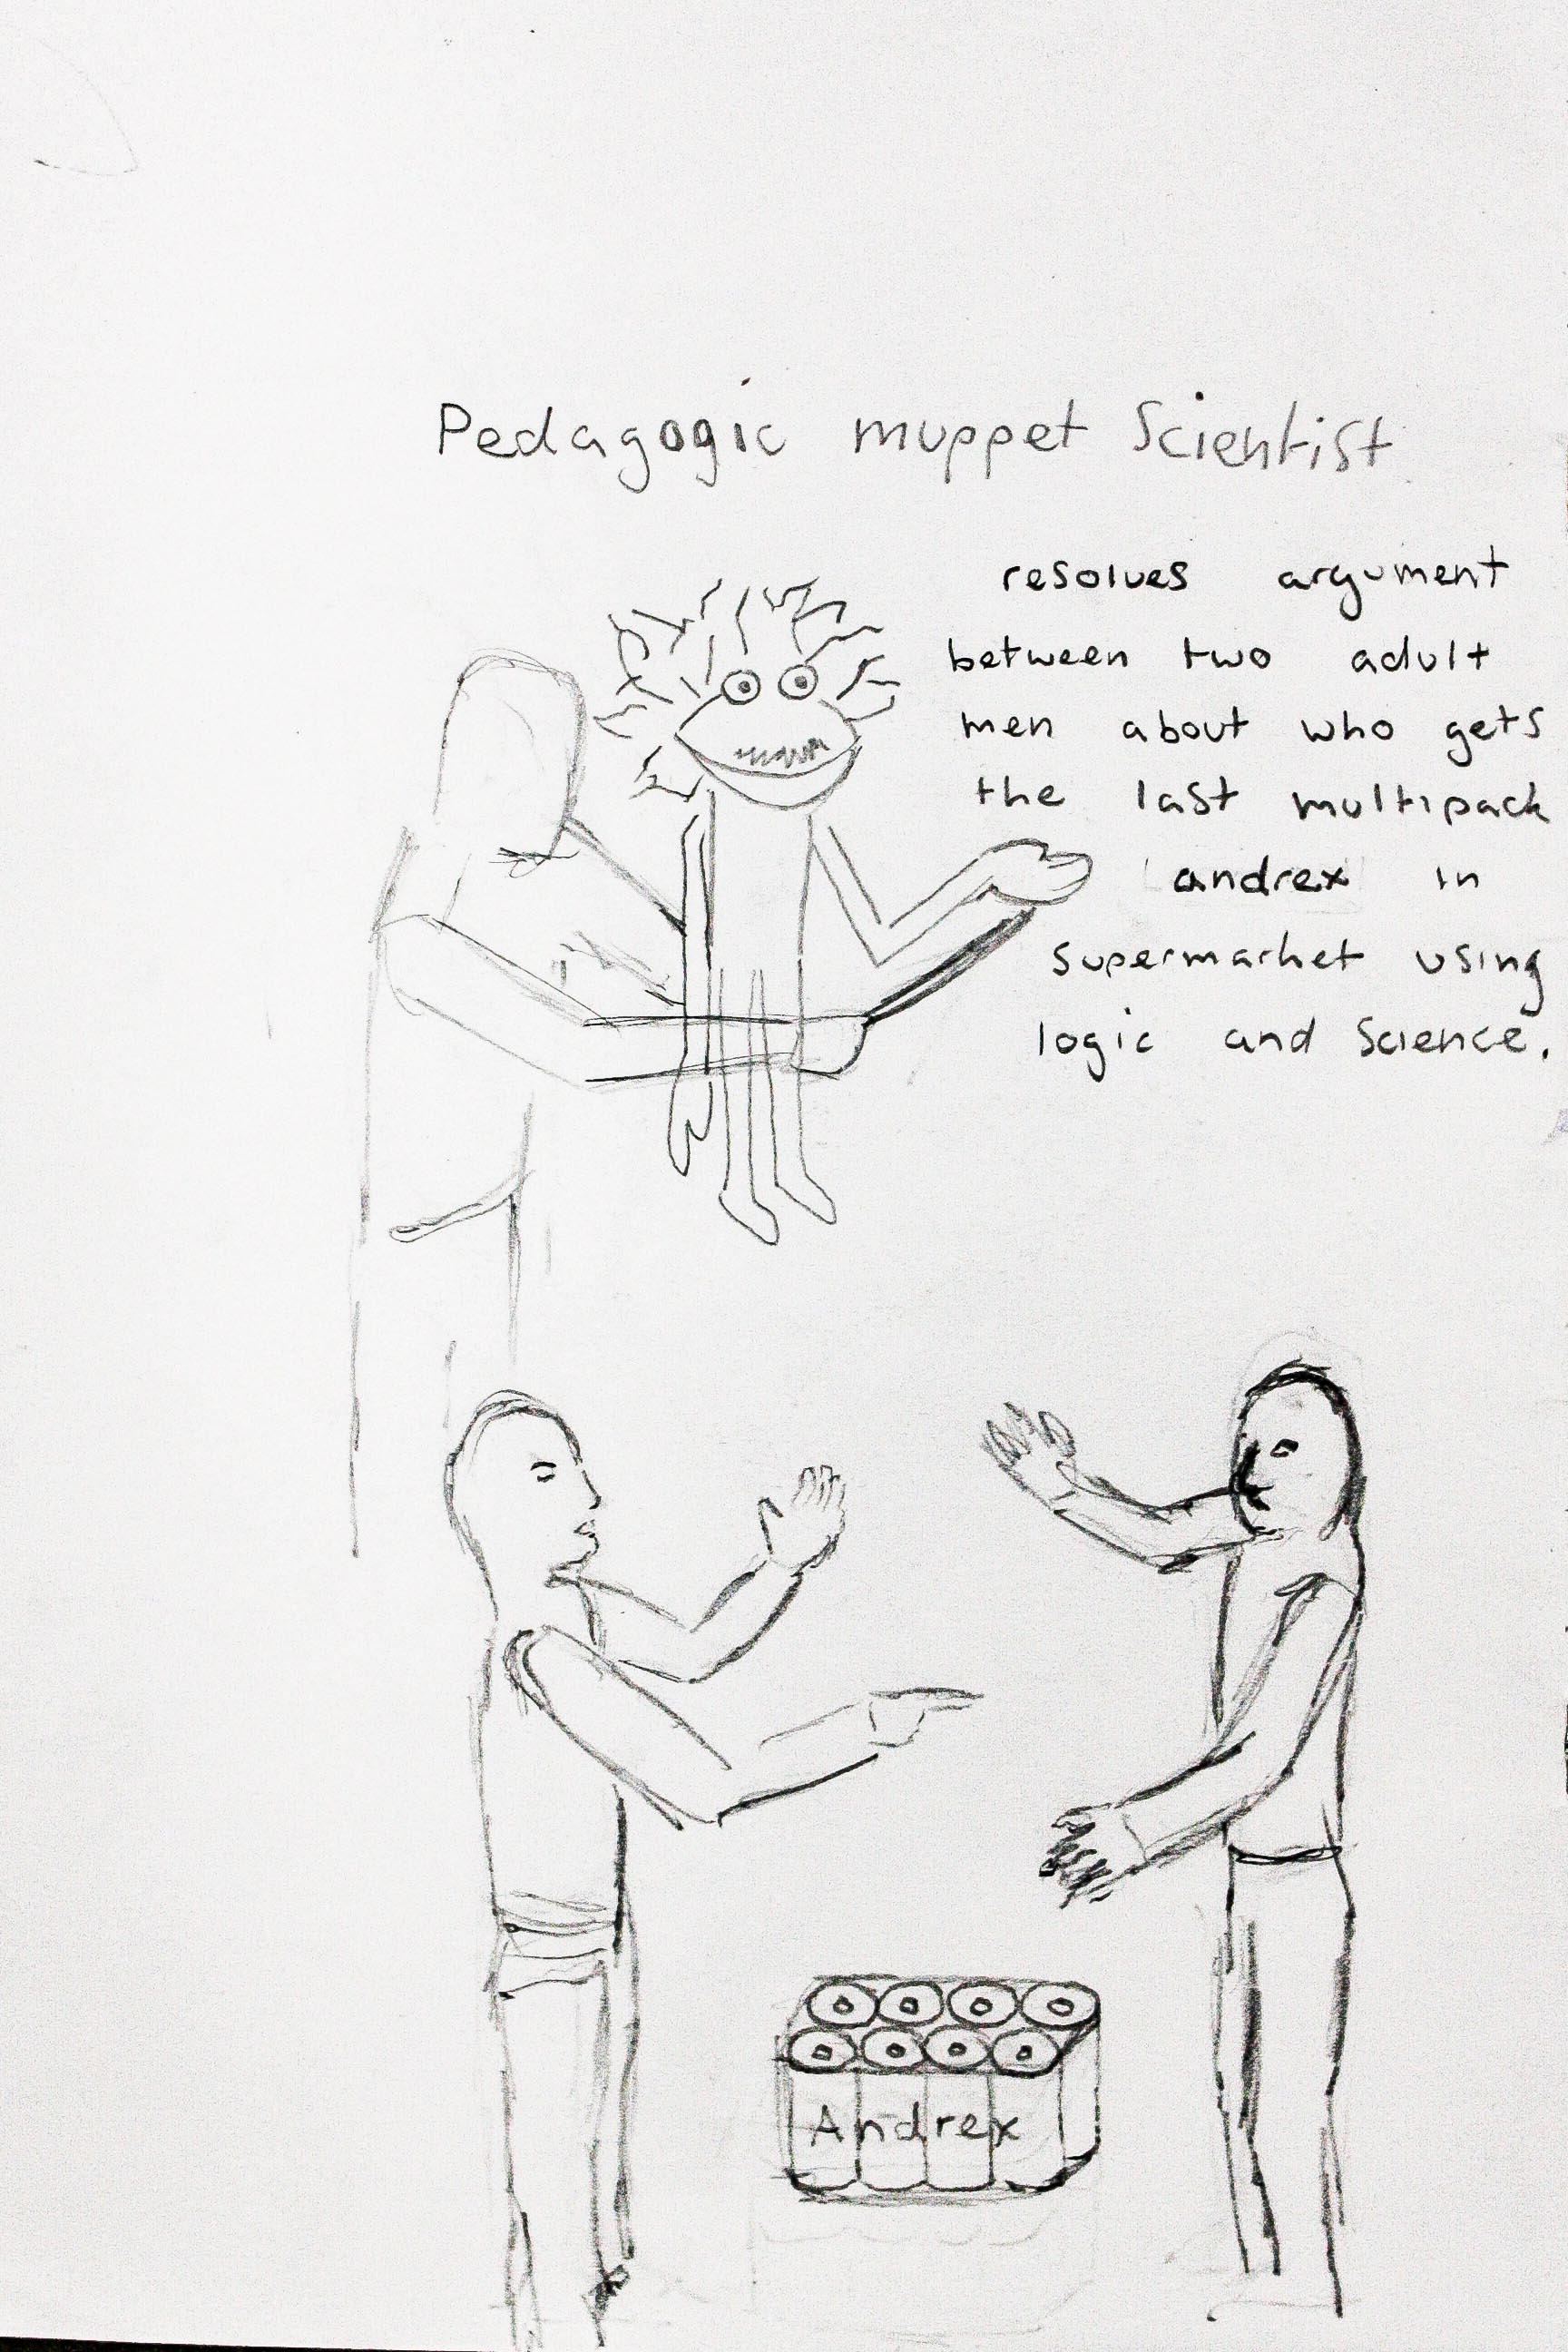 Pedagogic muppet Scientist
resolves argument
between two adult
men about who gets
the last multipack
andrex in
supermarket using
logic and science.
Andrex